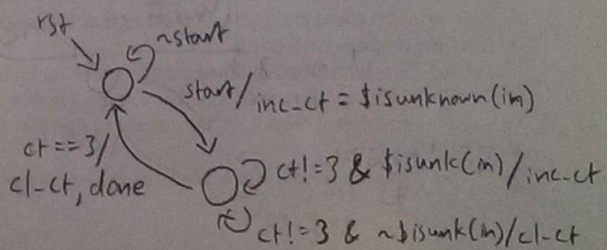 rst
~start
start/inc_ct = $isunknown(in)
ct==3/
cl_ct, done
ct!=3 & $isunk(in)/inc_ct
ct!=3 & ~$isunk(in)/cl_ct